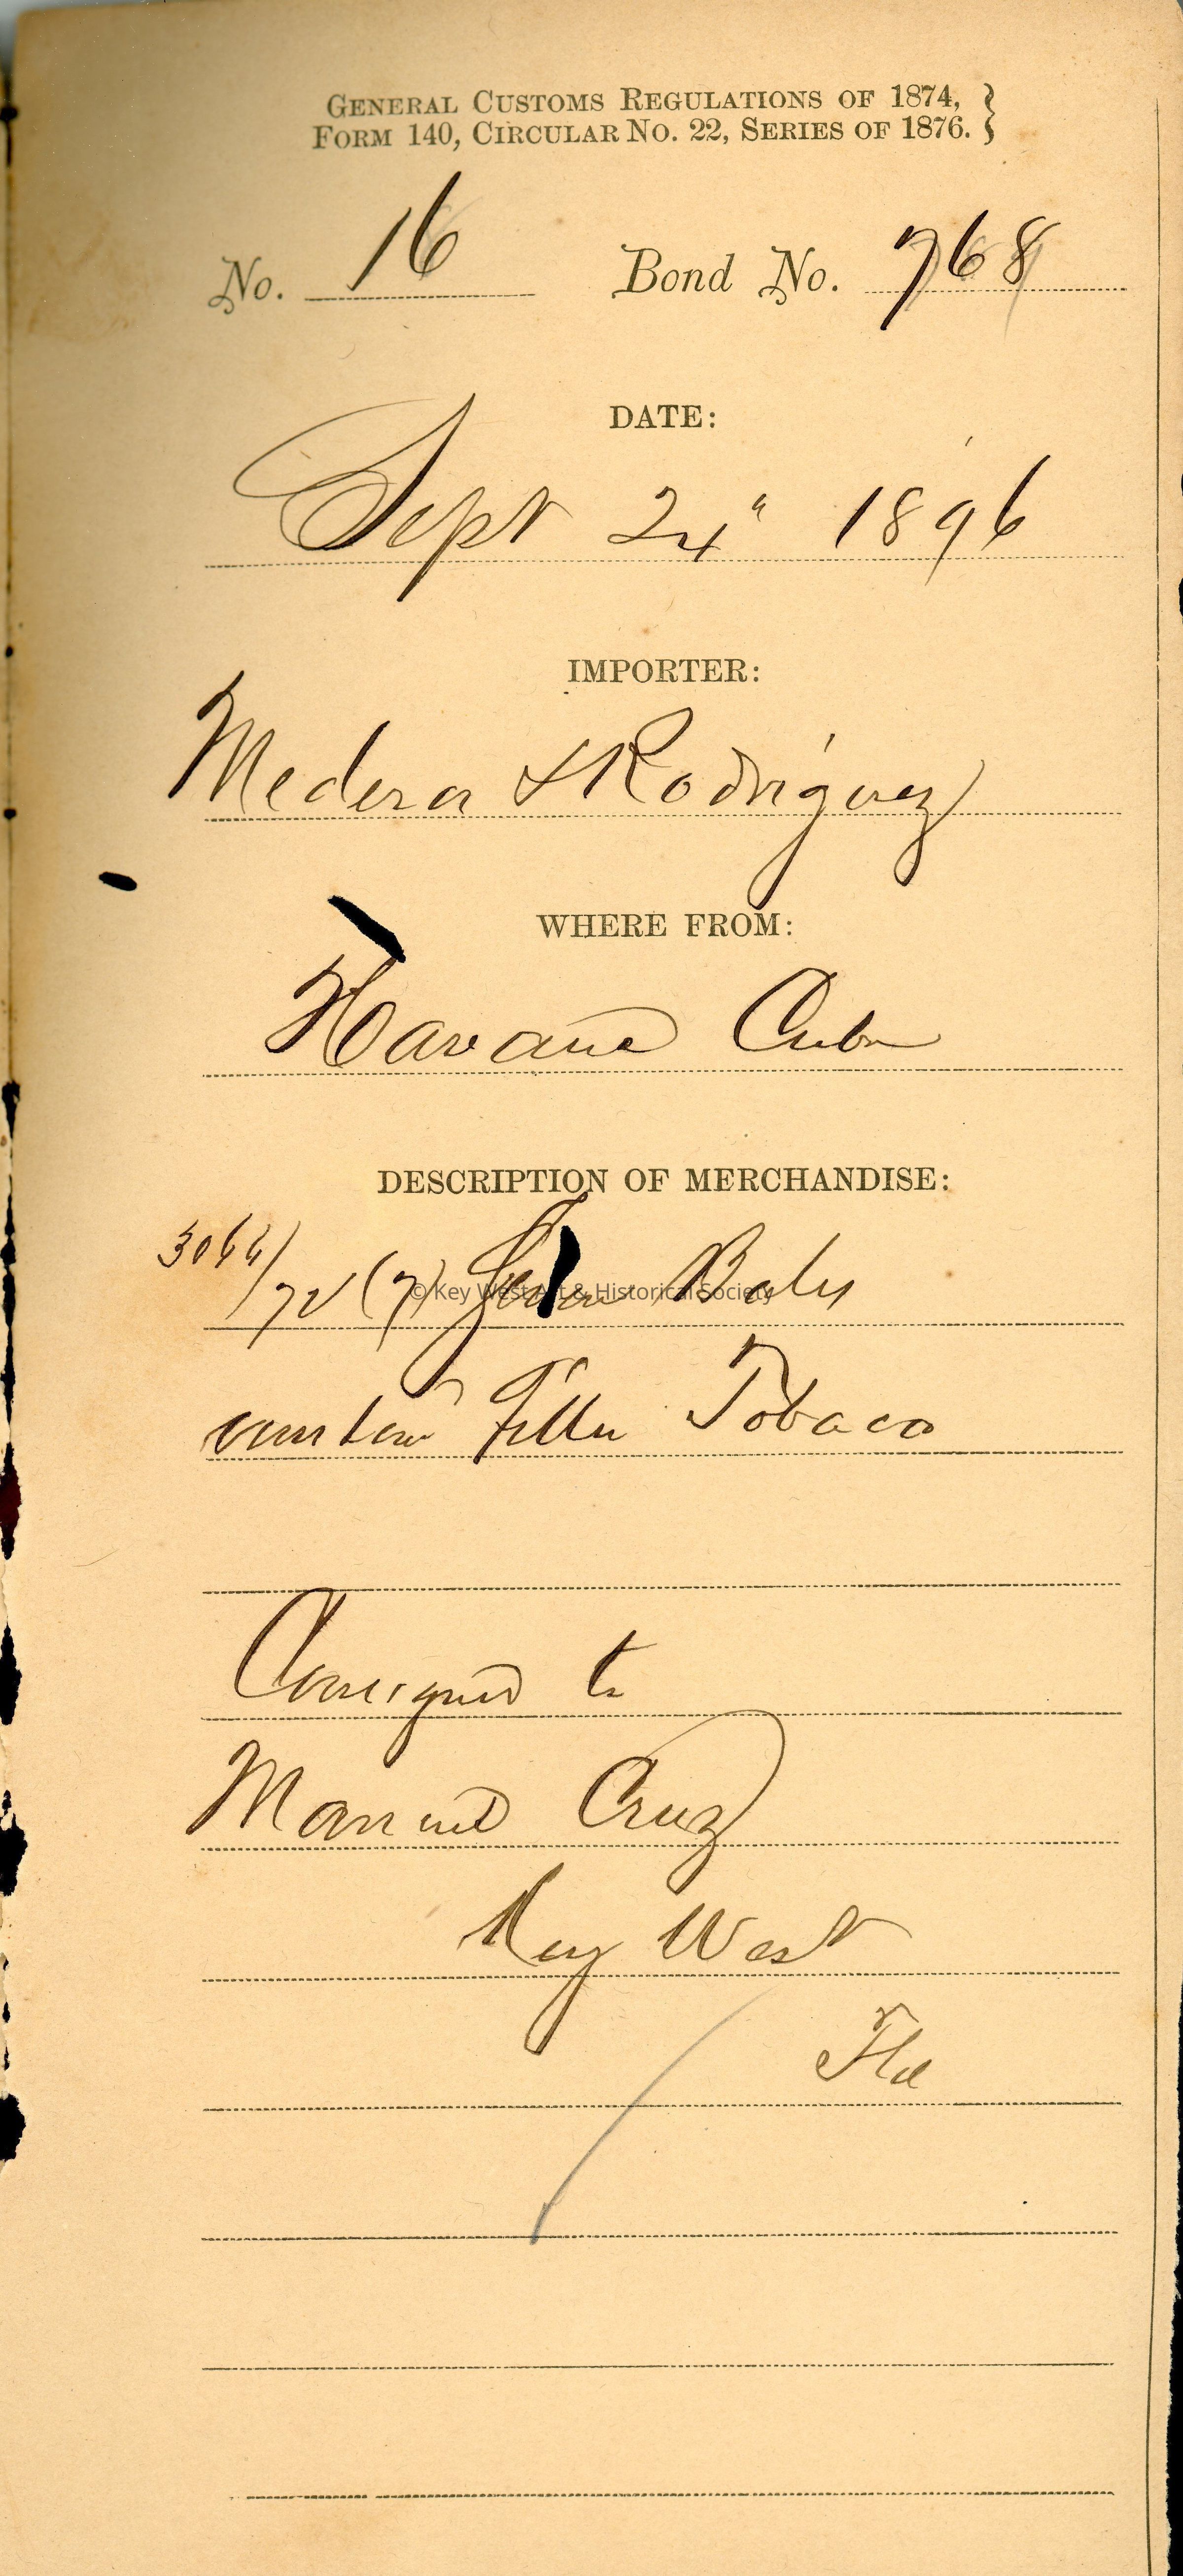 GENERAL CUSTOMS REGULATIONS OF 1874, }
FORM 140, CIRCULAR NO. 22, SERIES OF 1876. }
No. 16 Bond No. 768
DATE:
Sept 24" 1896
IMPORTER:
Medera & Rodriguez
WHERE FROM:
Havana Cuba
DESCRIPTION OF MERCHANDISE:
3066/72 (7) Seven Bales
© Key West Art & Historical Society
Filler Tobacco
Consigned to
Manuel Cruz
Key West
Fla